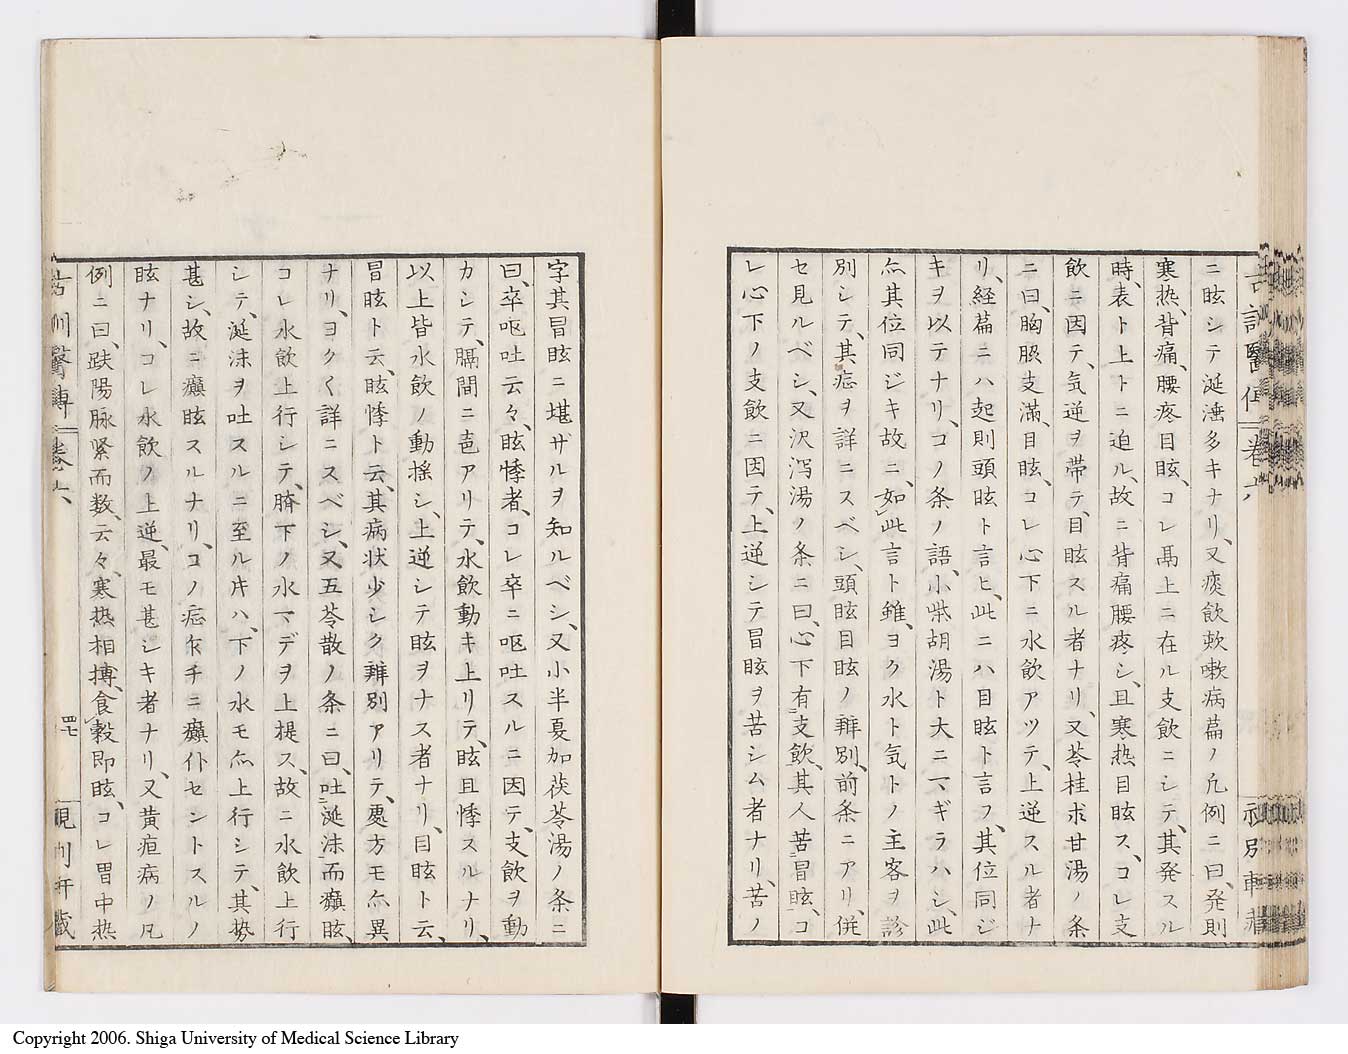 ニ眩シテ涎涶多キナリ、又痰飲欬嗽病萹ノ凡例ニ曰、発則
寒热、背痛、腰疼目眩、コレ鬲上ニ在ル支飲ニシテ、其発スル
時、表ト上トニ迫ル、故ニ背痛腰疼シ、且寒热目眩ス、コレ支
飲ニ因テ、気逆ヲ帯テ、目眩スル者ナリ、又苓桂朮甘湯ノ条
ニ曰、胸脇支滿、目眩、コレ心下ニ水飲アツテ、上逆スル者ナ
リ、経萹ニハ起則頭眩ト言ヒ、此ニハ目眩ト言フ、其位同ジ
キヲ以テナリ、コノ条ノ語、小柴胡湯ト大ニマギラハシ、此
亦其位同ジキ故ニ、如此言ト雖、ヨク水ト気トノ主客ヲ診
別シテ、其症ヲ詳ニスベシ、頭眩目眩ノ辨別、前条ニアリ、併
セ見ルベシ、又沢瀉湯ノ条ニ曰、心下有支飲、其人苦冒眩、コ
レ心下ノ支飲ニ因テ、上逆シテ冒眩ヲ苦シム者ナリ、苦ノ
字其冒眩ニ堪ザルヲ知ルベシ、又小半夏加茯苓湯ノ条ニ
曰、卒呕吐云々、眩悸者、コレ卒ニ呕吐スルニ因テ、支飲ヲ動
カシテ、膈間ニアリテ、水飲動キ上リテ、眩且悸スルナリ、
以上皆水飲ノ動揺シ、上逆シテ眩ヲナス者ナリ、目眩ト云、
冒眩ト云、眩悸ト云、其病状少シク辨別アリテ、處方モ亦異
ナリ、ヨクく詳ニスベシ、又五苓散ノ条ニ曰、吐涎沫而癲眩、
コレ水飲上行シテ、臍下ノ水マデヲ上提ス、故ニ水飲上行
シテ、涎沫ヲ吐スルニ至ル片ハ、下ノ水モ亦上行シテ、其勢
甚シ、故ニ癲眩スルナリ、コノ症乍チニ癲仆セントスルノ
眩ナリ、コレ水飲ノ上逆、最モ甚シキ者ナリ、又黄疸病ノ凡
例ニ曰、趺陽脉紧而数、云々、寒热相搏、食穀即眩、コレ胃中热
古訓醫傳 巻六 四七